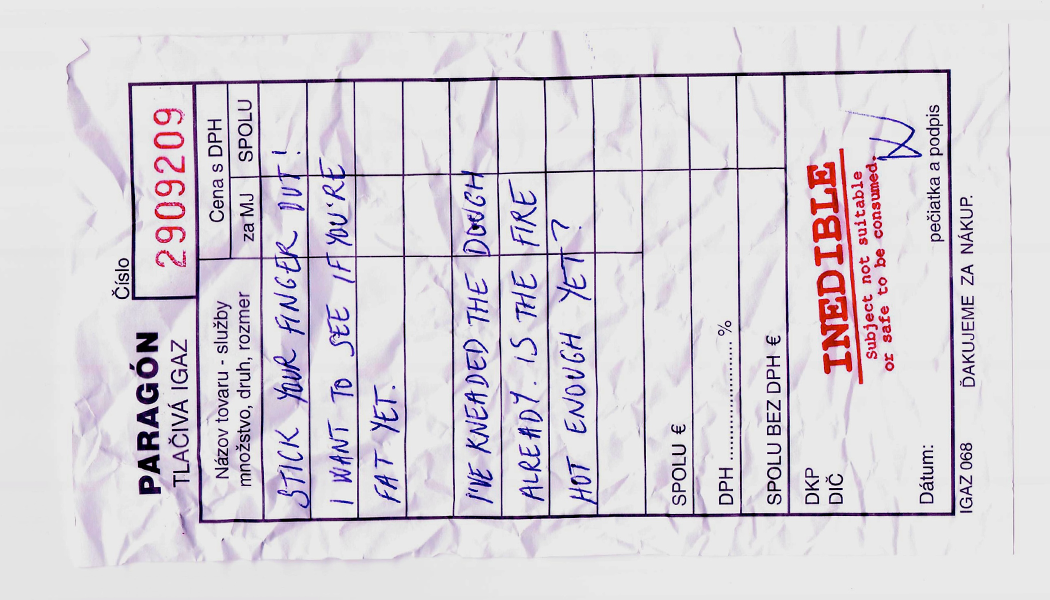 PARAGÓN
TLAČIVÁ IGAZ
Číslo
2909209
Názov tovaru - služby
množstvo, druh, rozmer
Cena s DPH
za MJ
SPOLU
STICK YOUR FINGER OUT!
I WANT TO SEE IF YOU'RE
FAT YET.
I'VE KNEADED THE DOUGH
ALREADY. IS THE FIRE
HOT ENOUGH YET?
SPOLU €
DPH .................... %
SPOLU BEZ DPH €
DKP
DIČ
INEDIBLE
Subject not suitable
or safe to be consumed.
Dátum:
pečiatka a podpis
IGAZ 068
ĎAKUJEME ZA NÁKUP.